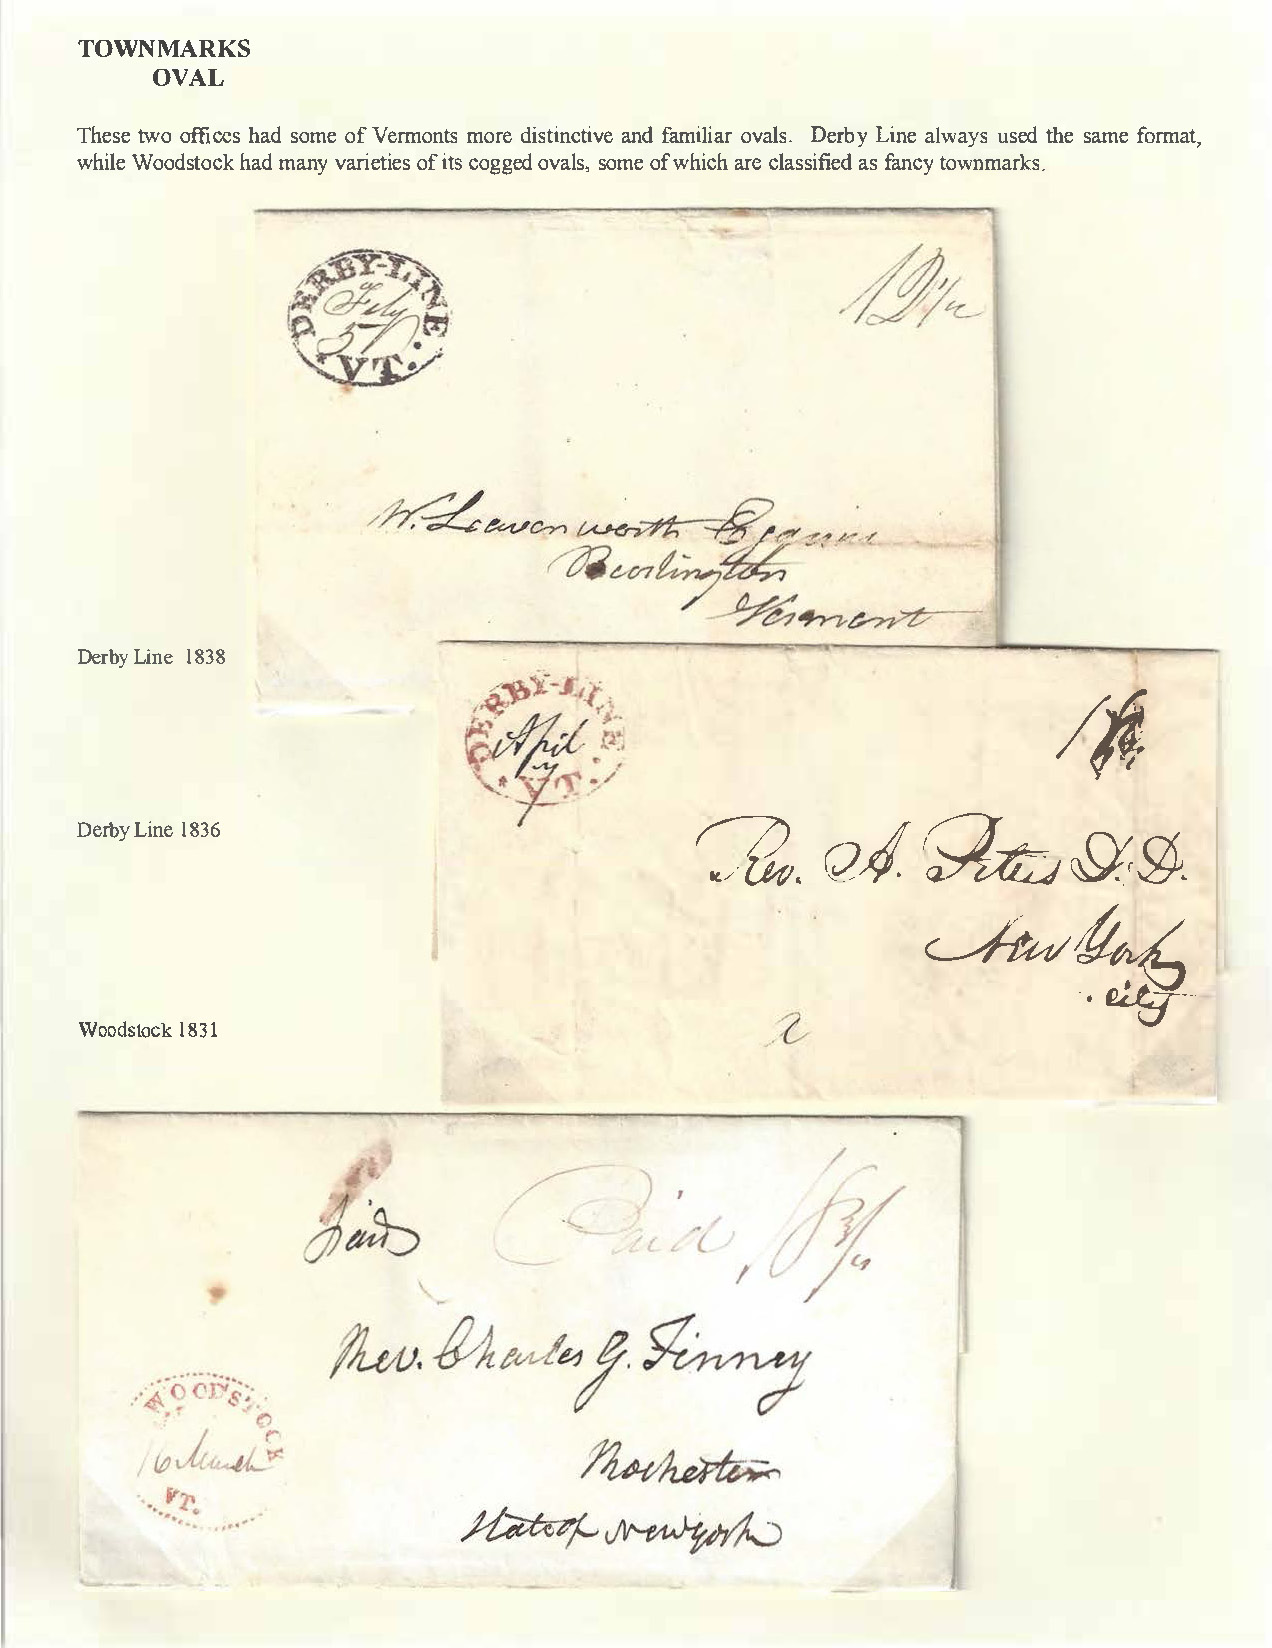 TOWNMARKS
OVAL
These two offices had some of Vermonts more distinctive and familiar ovals. Derby Line always used the same format,
while Woodstock had many varieties of its cogged ovals, some of which are classified as fancy townmarks.
DERBY-LINE
Feby
5
VT.
12 1/2
W. Leavenworth Esquire
Burlington
Vermont
Derby Line 1838
DERBY-LINE
April
VT.
Derby Line 1836
Rev. A. Peters D.D.
New York
City
Woodstock 1831
Paid
Paid 18 3/4
Rev. Charles G. Finney
WOODSTOCK
16 March
VT.
Rochester
State of New York